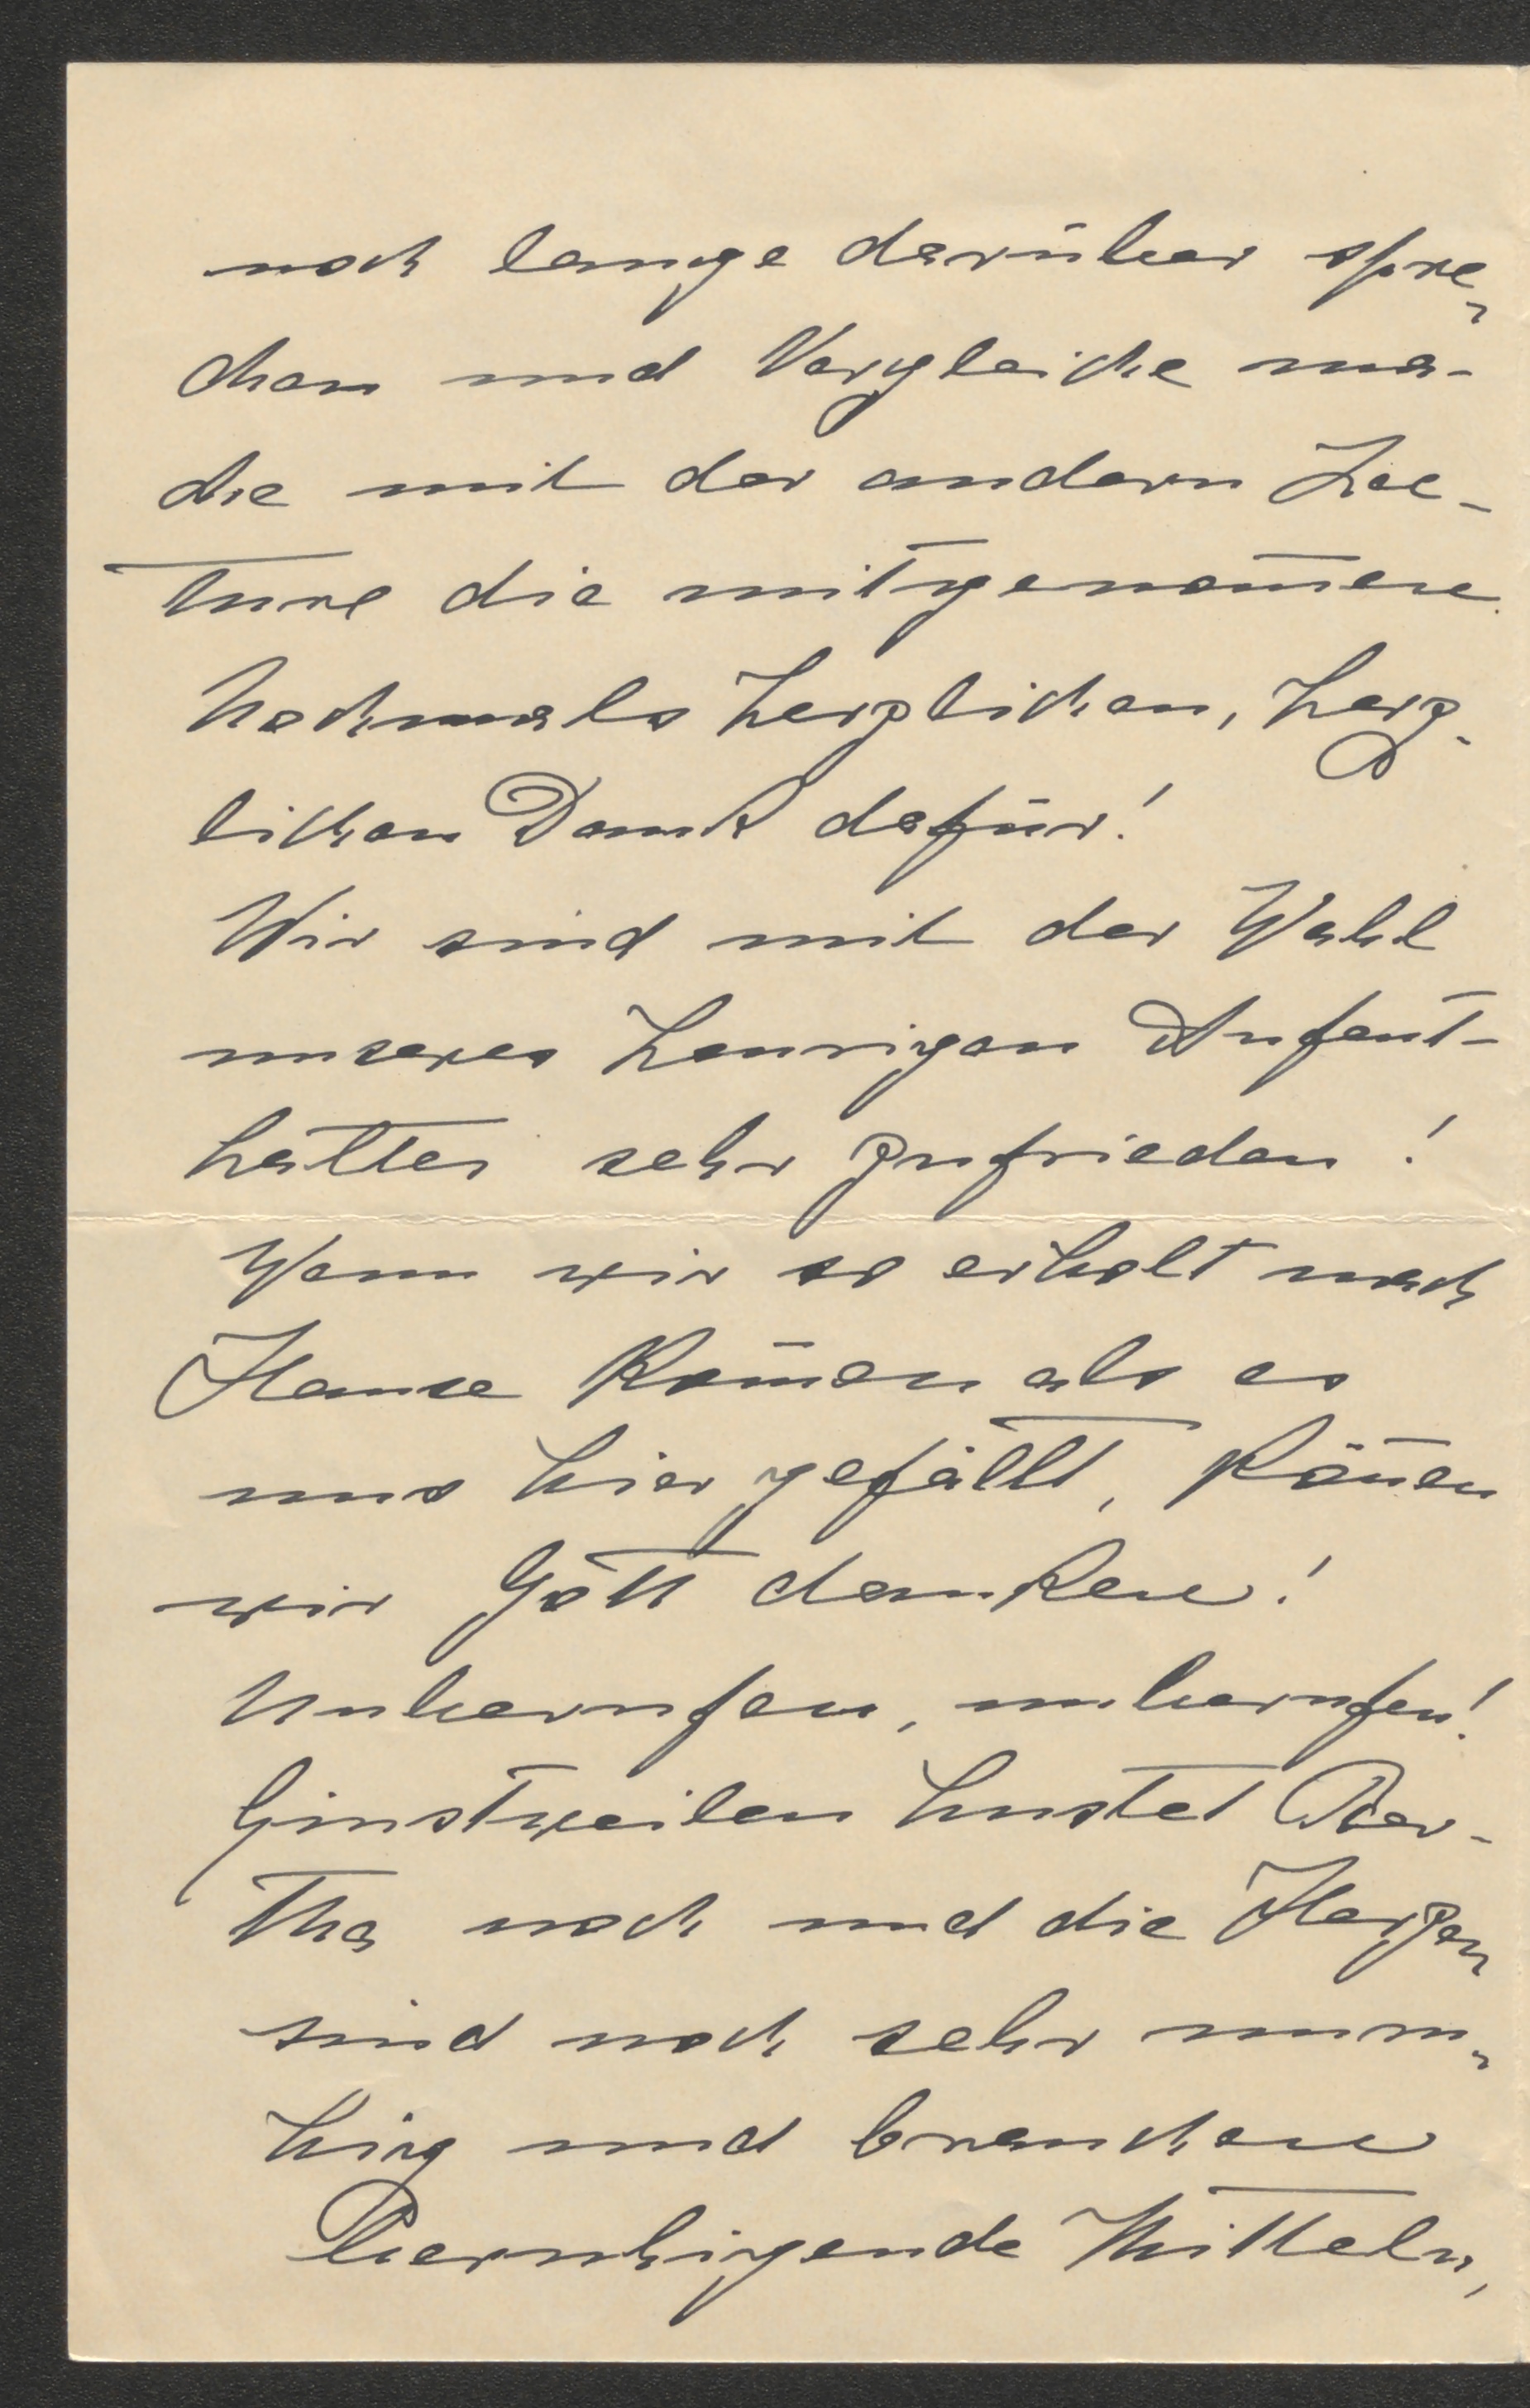 noch lange darüber spre-
chen und Vergleiche ma-
che mit der andern Lec-
ture die mitgenom̅ene.
Nochmals herzlichen, herz-
lichen Dank dafür!
Wir sind mit der Wahl
unseres heurigen Aufent-
haltes sehr zufrieden!
Wenn wir so erholt nach
Hause kom̅en als es
uns hier gefällt, kön̅en
wir Gott danken!
Unberufen, unberufen!
Einstweilen hustet Ber-
tha noch und die Herzen
sind noch sehr unru-
hig und brauchen
beruhigende Mitteln,